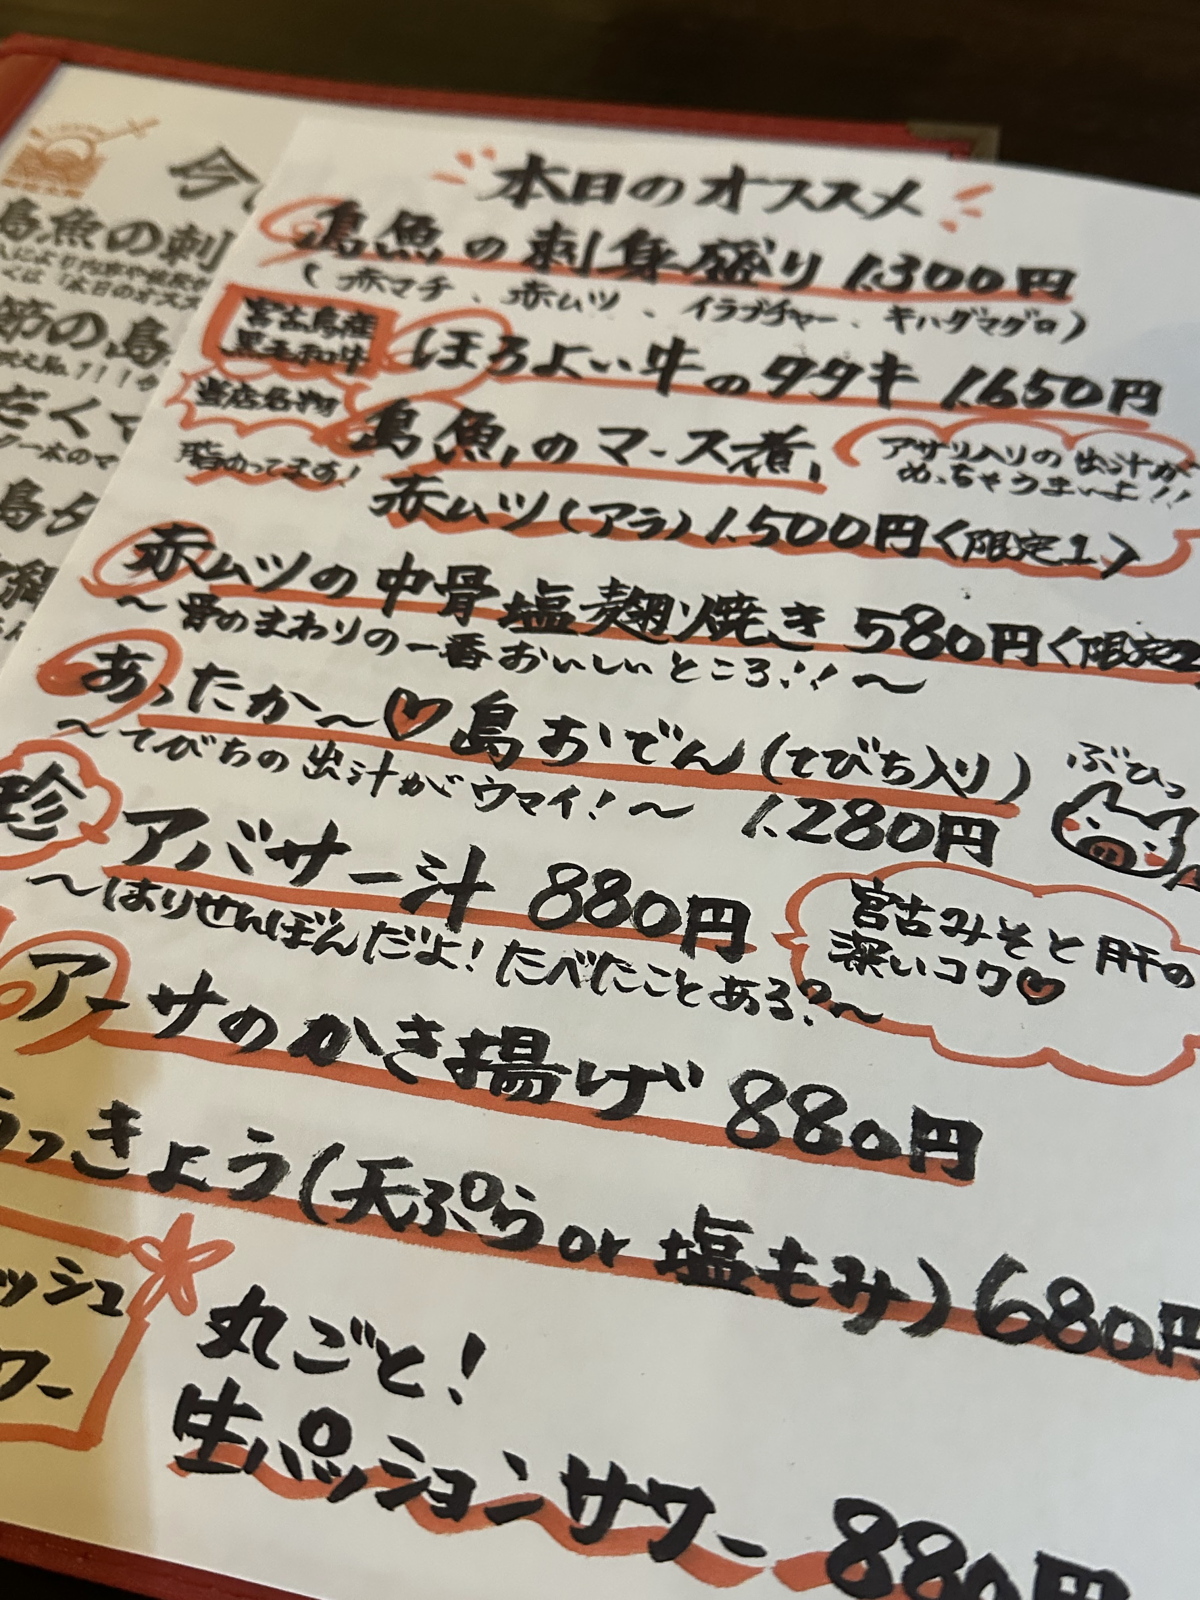 本日のオススメ
島魚の刺身盛り 1,300円
(赤マチ、赤ムツ、イラブチャー、キハダマグロ)
宮古島産
黒毛和牛
ほろよい牛のタタキ 1,650円
当店名物
島魚のマース煮
脂のってます!
アサリ入りの出汁が
めっちゃうまいよ!!
赤ムツ(アラ)1,500円〈限定1〉
赤ムツの中骨塩麹焼き 580円〈限定2
〜骨のまわりの一番おいしいところ!!〜
あったか〜♡島おでん(てびち入り)
〜てびちの出汁がウマイ!〜 1,280円
ぶひっ
珍
アバサー汁 880円
〜はりせんぼんだよ!たべたことある?〜
宮古みそと肝の
深いコク♡
アーサのかき揚げ 880円
らっきょう(天ぷら or 塩もみ)680円
ッシュ
ワー
丸ごと!
生パッションサワー 880円
今
島魚の刺
くは「本日のオスス
節の島
だくて
島ダ